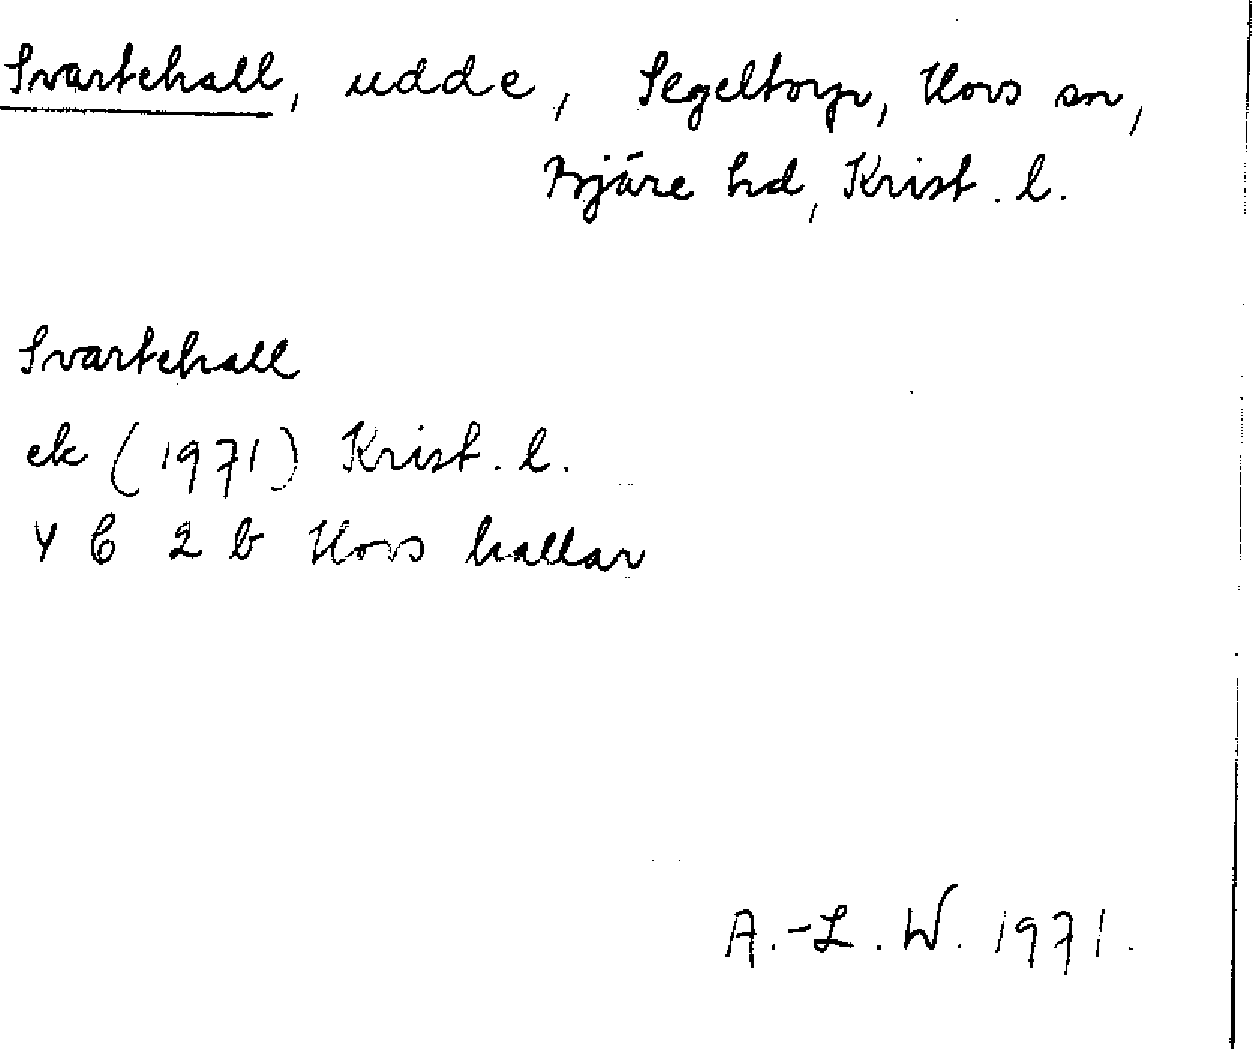 Svartehall, udde, Segeltorp, Hovs sn,
Bjäre hd, Krist. l.
Svartehall
ek (1971) Krist. l.
4 C 2 b Hovs hallar
A.-L. W. 1971.